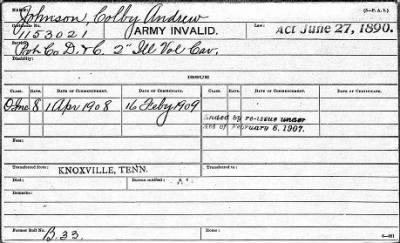 (3-F. A. S.)
Johnson, Colby Andrew
NAME:
Certificate No. ARMY INVALID. Law: Act June 27, 1890.
1153021
Service:
Pvt Co D. & C. 2" Ill Vol Cav.
Disability:
CLASS. RATE. DATE OF COMMENCEMENT. DATE OF CERTIFICATE. CLASS. RATE. DATE OF COMMENCEMENT. DATE OF CERTIFICATE.
8 1 Apr 1908 16 Feby 1909 Ended by re-issue under
Act of February 6, 1907.
Fees:
Transferred from: KNOXVILLE, TENN. Transferred to:
Died: Bureau notified:
Remarks:
Former Roll No. Home:
B.33.